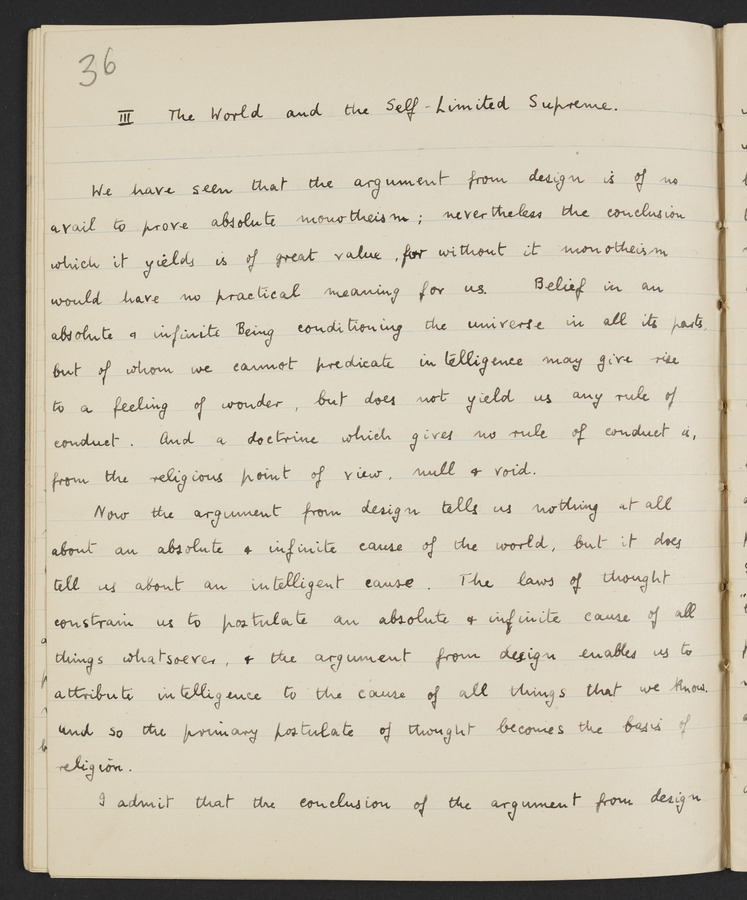 36
III The World and the Self-Limited Supreme.
We have seen that the argument from design is of no
avail to prove absolute monotheism; nevertheless the conclusion
which it yields is of great value, for without it monotheism
would have no practical meaning for us. Belief in an
absolute & infinite Being conditioning the universe in all its parts,
but of whom we cannot predicate intelligence may give rise
to a feeling of wonder, but does not yield us any rule of
conduct. And a doctrine which gives no rule of conduct is,
from the religious point of view, null & void.
Now the argument from design tells us nothing at all
about an absolute & infinite cause of the world, but it does
tell us about an intelligent cause. The laws of thought
constrain us to postulate an absolute & infinite cause of all
things whatsoever, & the argument from design enables us to
attribute intelligence to the cause of all things that we know.
And so the primary postulate of thought becomes the basis of
religion.
I admit that the conclusion of the argument from design